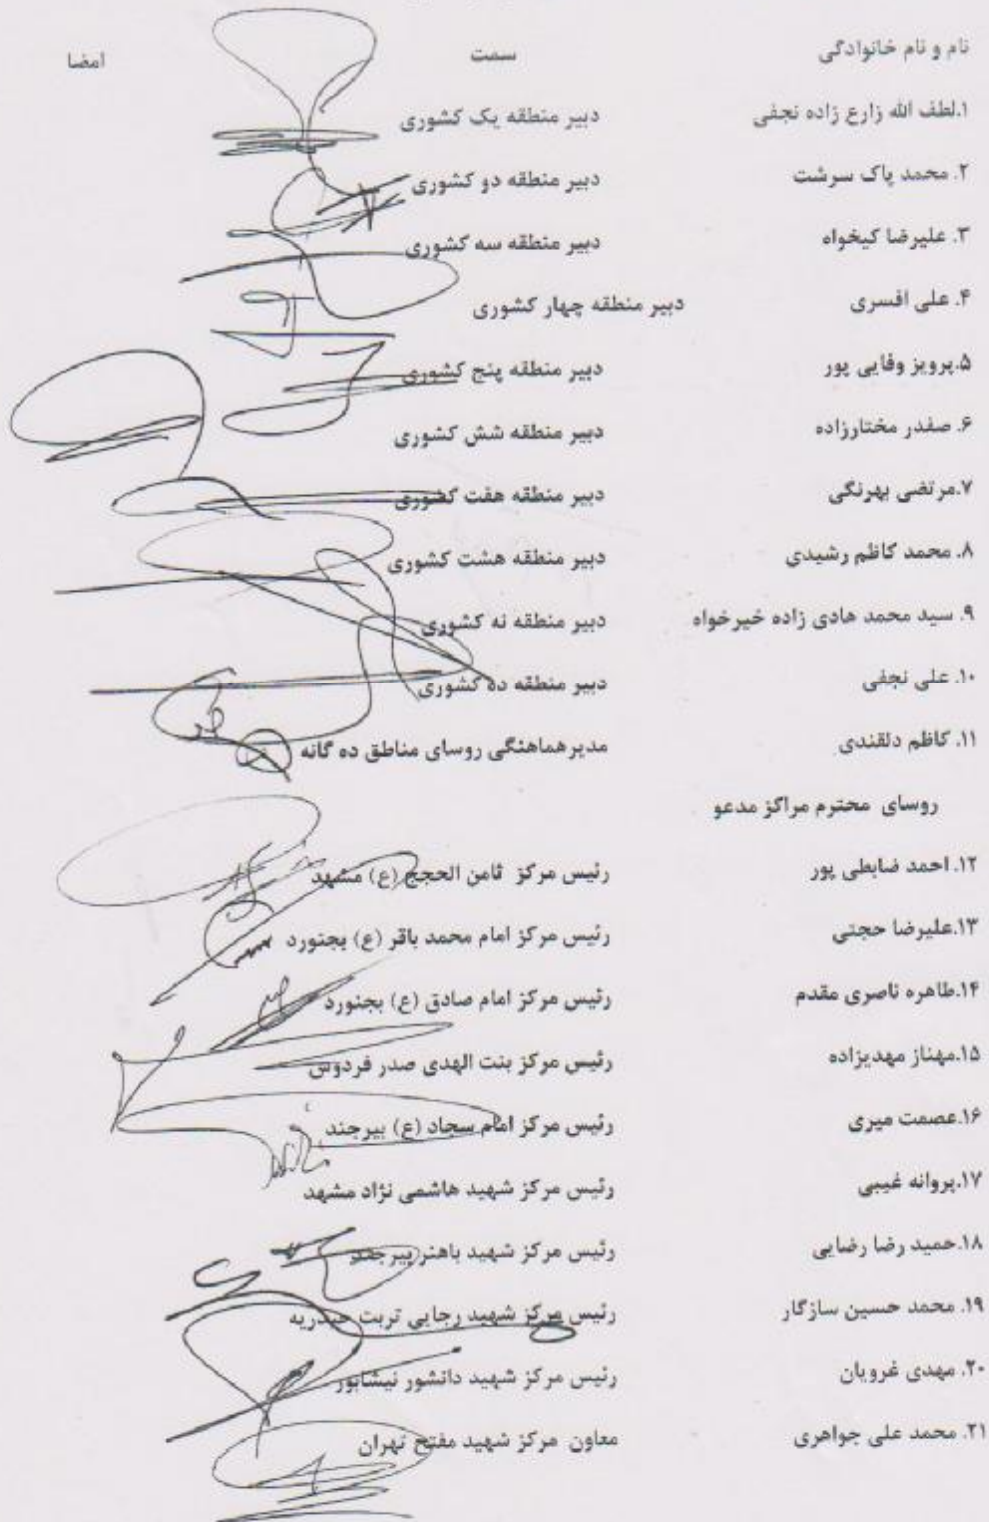 نام و نام خانوادگی سمت امضا
۱.لطف الله زارع زاده نجفی دبیر منطقه یک کشوری
۲. محمد پاک سرشت دبیر منطقه دو کشوری
۳. علیرضا کیخواه دبیر منطقه سه کشوری
۴. علی افسری دبیر منطقه چهار کشوری
۵.پرویز وفایی پور دبیر منطقه پنج کشوری
۶. صفدر مختارزاده دبیر منطقه شش کشوری
۷.مرتضی بهرنگی دبیر منطقه هفت کشوری
۸. محمد کاظم رشیدی دبیر منطقه هشت کشوری
۹. سید محمد هادی زاده خیرخواه دبیر منطقه نه کشوری
۱۰. علی نجفی دبیر منطقه ده کشوری
۱۱. کاظم دلقندی مدیرهماهنگی روسای مناطق ده گانه
روسای محترم مراکز مدعو
۱۲. احمد ضابطی پور رئیس مرکز ثامن الحجج (ع) مشهد
۱۳.علیرضا حجتی رئیس مرکز امام محمد باقر (ع) بجنورد
۱۴.طاهره ناصری مقدم رئیس مرکز امام صادق (ع) بجنورد
۱۵.مهناز مهدیزاده رئیس مرکز بنت الهدی صدر فردوس
۱۶.عصمت میری رئیس مرکز امام سجاد (ع) بیرجند
۱۷.پروانه غیبی رئیس مرکز شهید هاشمی نژاد مشهد
۱۸.حمید رضا رضایی رئیس مرکز شهید باهنر بیرجند
۱۹. محمد حسین سازگار رئیس مرکز شهید رجایی تربت حیدریه
۲۰. مهدی غرویان رئیس مرکز شهید دانشور نیشابور
۲۱. محمد علی جواهری معاون مرکز شهید مفتح تهران